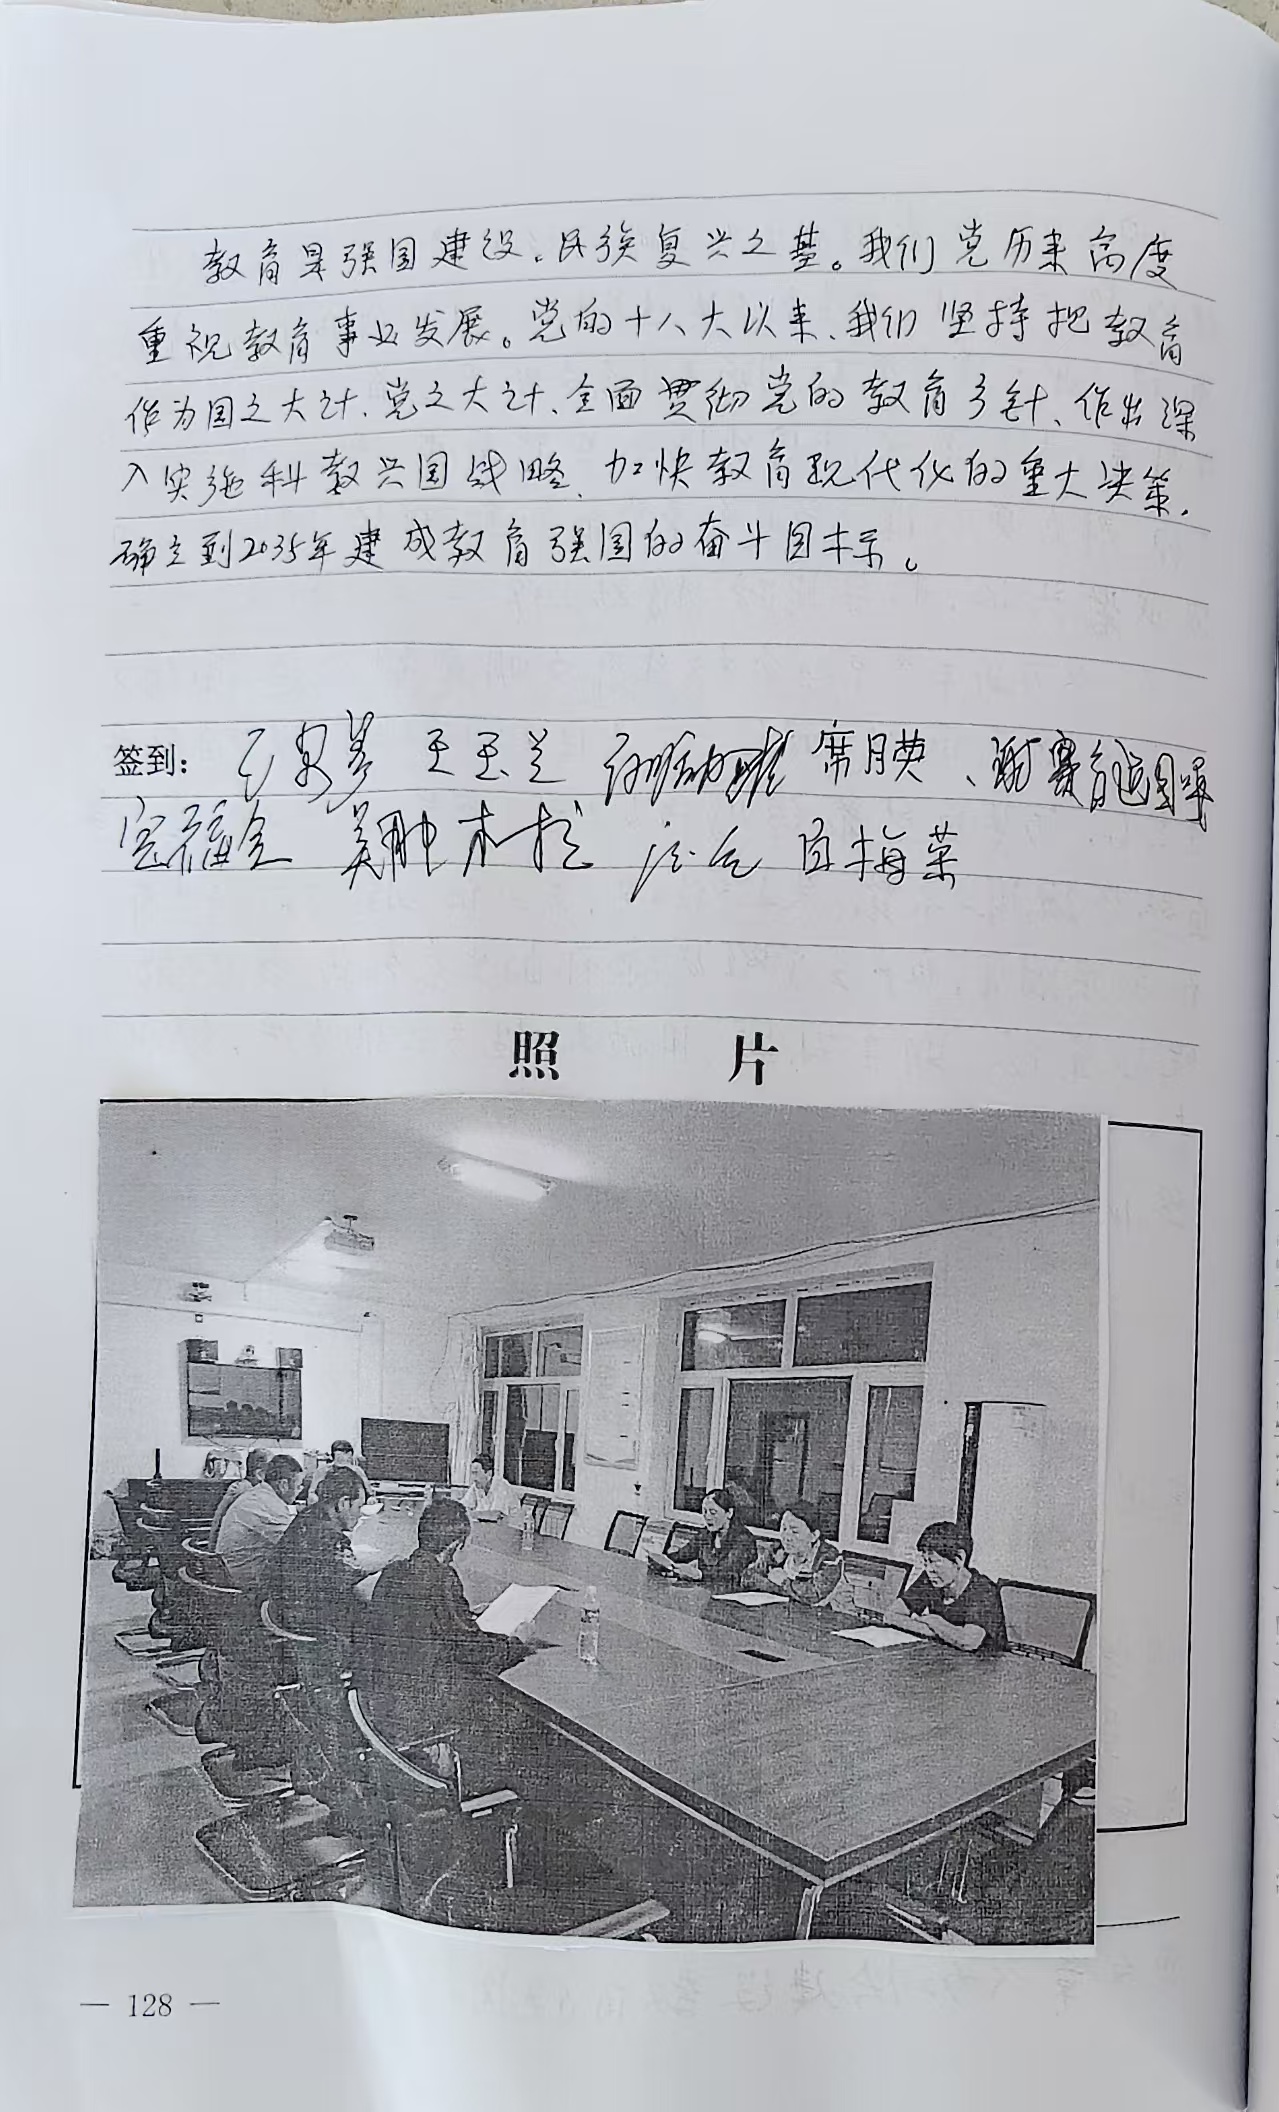 教育是强国建设、民族复兴之基。我们党历来高度
重视教育事业发展。党的十八大以来、我们坚持把教育
作为国之大计、党之大计、全面贯彻党的教育方针、作出深
入实施科教兴国战略、加快教育现代化的重大决策，
确立到2035年建成教育强国的奋斗目标。
签到： 王玉兰 席月英、
照 片
— 128 —